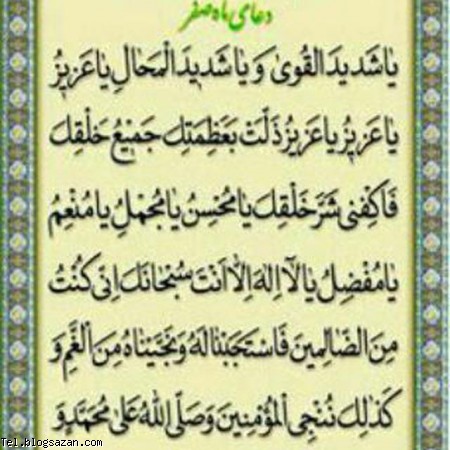 دعای ماه صفر
یٰا شَدیدَ الْقُویٰ وَ یٰا شَدیدَ الْمَحٰالِ یٰا عَزیزُ
یٰا عَزیزُ یٰا عَزیزُ ذَلَّتْ بِعَظِمَتِكَ جَمیْعُ خَلْقِكَ
فَاكْفِنی شَرَّ خَلْقِكَ یٰا مُحْسِنُ یٰا مُجْمِلُ یٰا مُنْعِمُ
یٰا مُفْضِلُ یٰا لٰا اِلٰهَ اِلّٰا اَنْتَ سُبْحٰانَكَ اِنّی كُنْتُ
مِنَ الظّٰالِمینَ فَاسْتَجَبْنٰا لَهُ وَ نَجَّیْنٰاهُ مِنَ الْغَمِّ وَ
كَذٰلِكَ نُنْجِی الْمُؤْمِنینَ وَ صَلَّی اللّٰهُ عَلیٰ مُحَمَّدٍ وَ
Tel.blogsazan.com